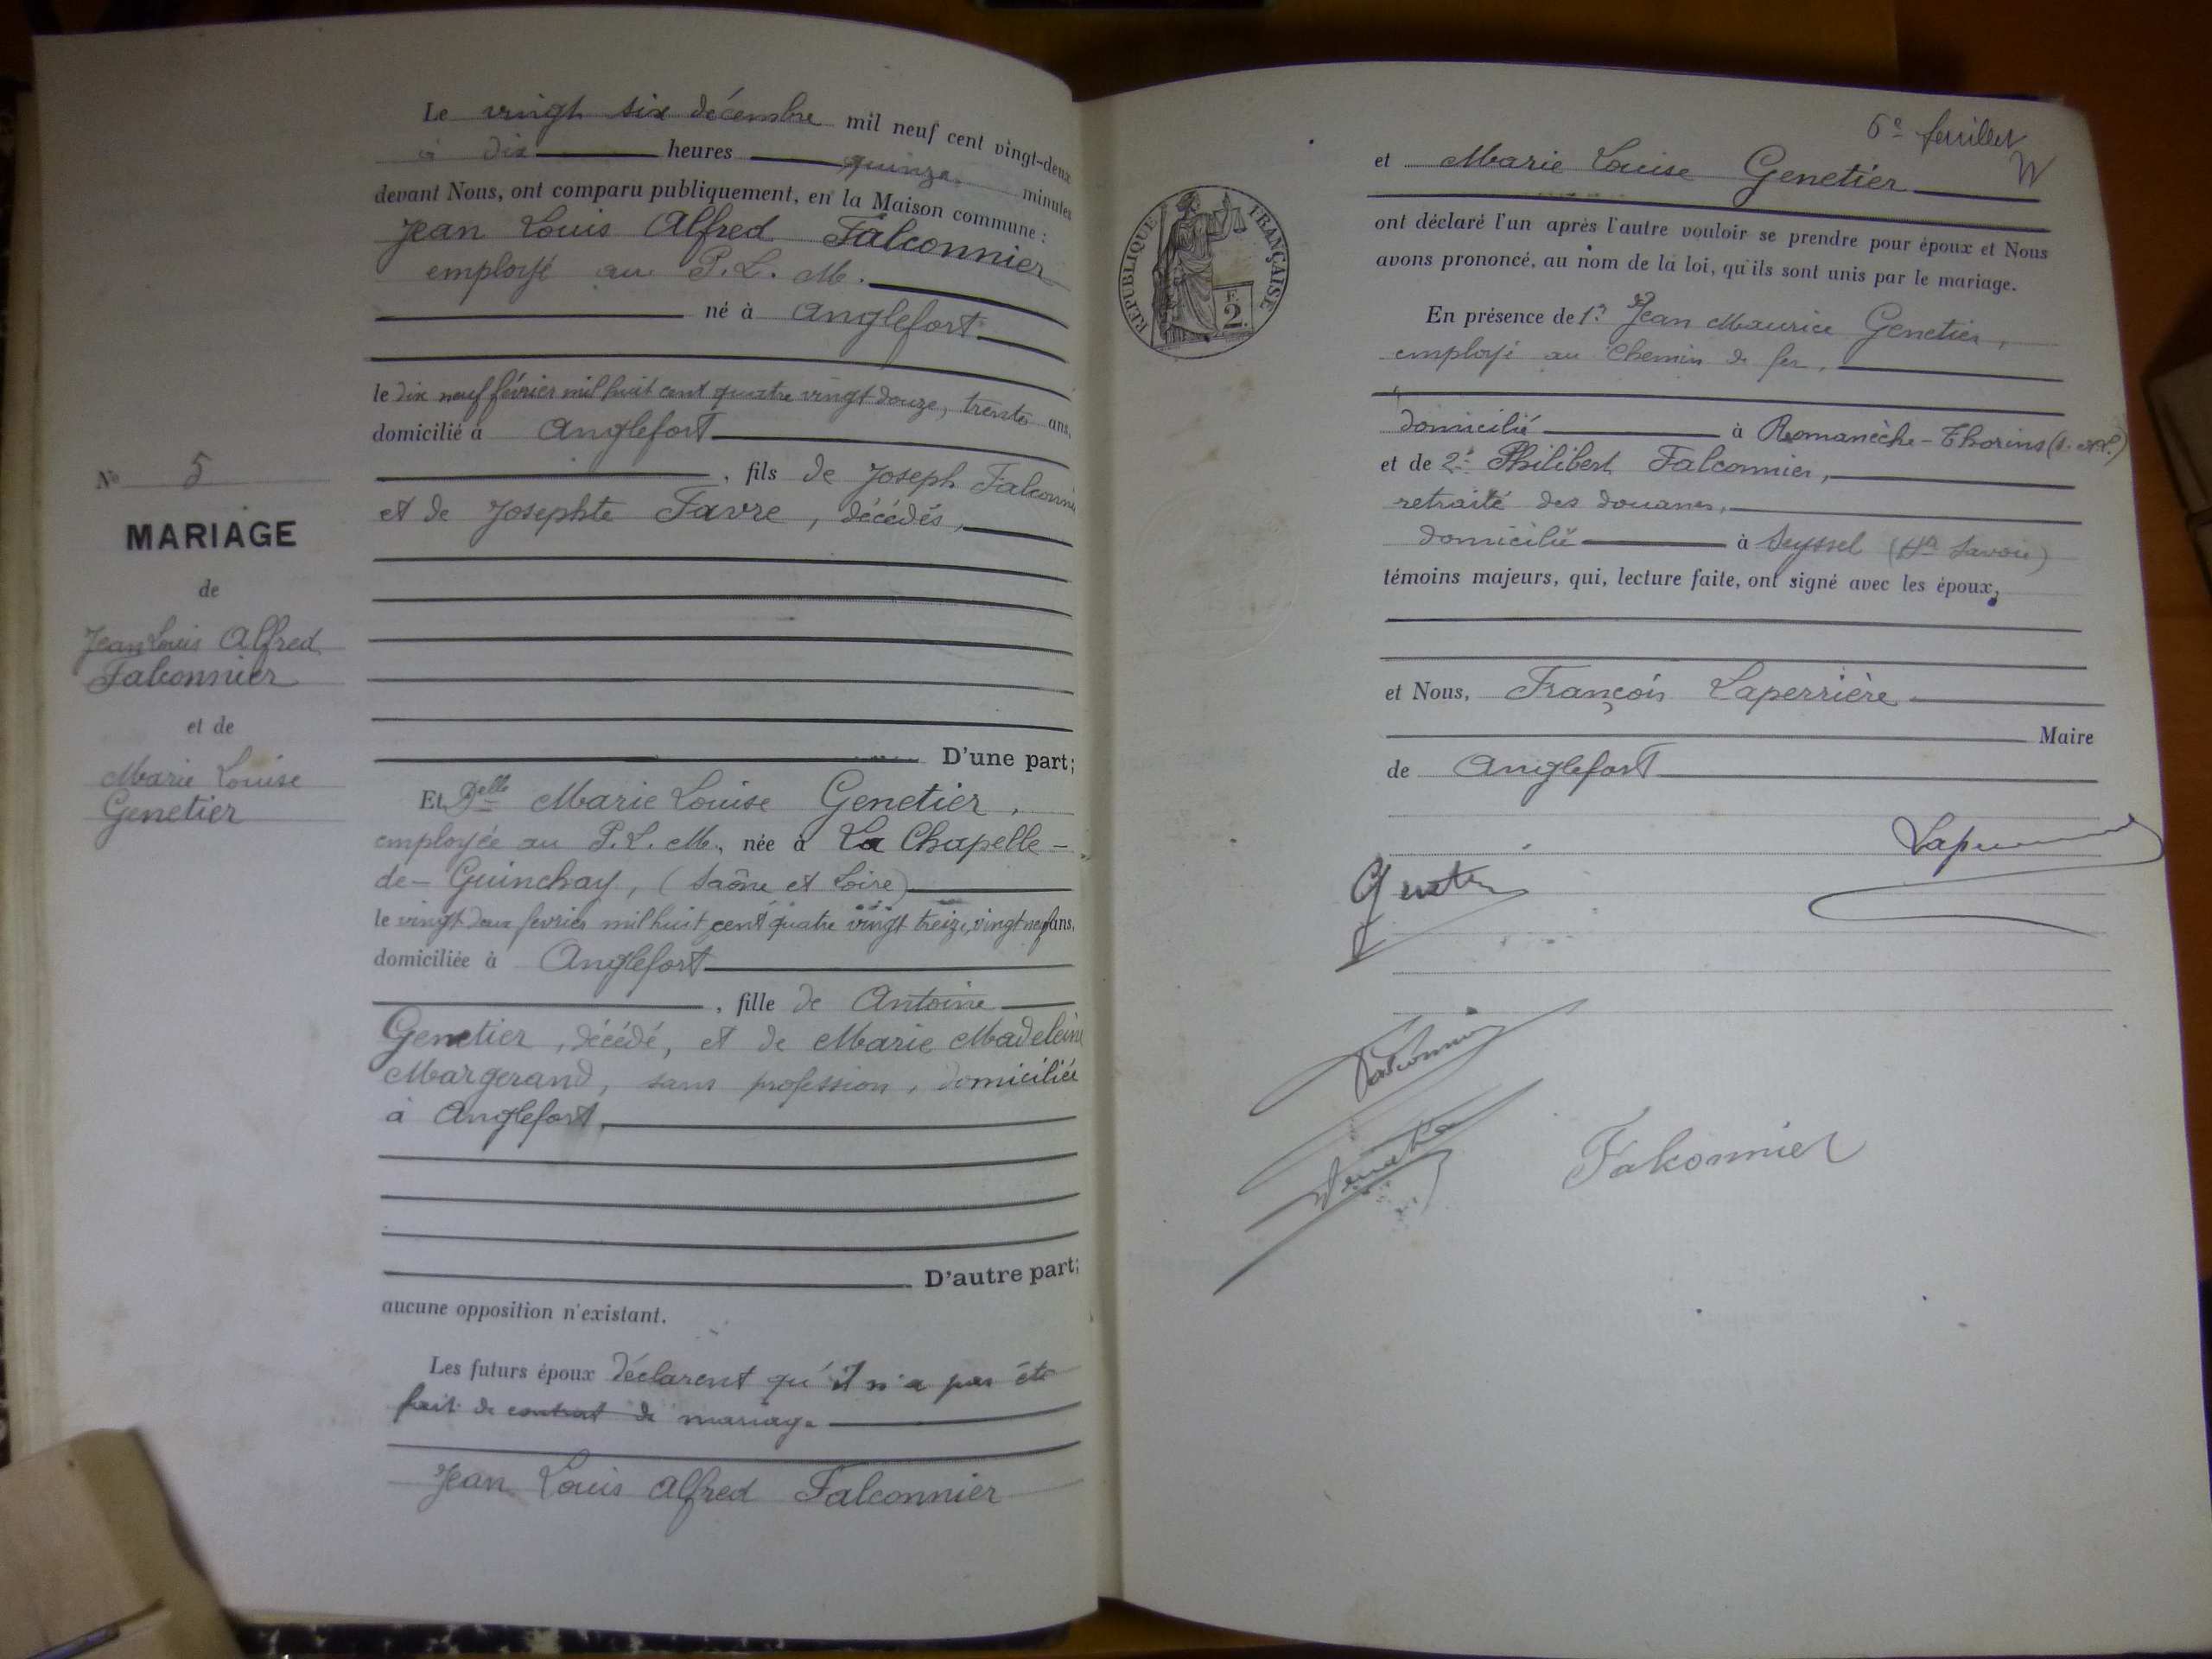 N° 5
MARIAGE
de
Jean Louis Alfred
Falconnier
et de
Marie Louise
Genetier
Le vingt six décembre mil neuf cent vingt-deux
à dix heures quinze minutes
devant Nous, ont comparu publiquement, en la Maison commune :
Jean Louis Alfred Falconnier
employé au P. L. M.
né à Anglefort
le dix neuf février mil huit cent quatre vingt douze, trente ans,
domicilié à Anglefort
, fils de Joseph Falconnier
et de Josephte Favre, décédés,
D'une part;
Et Delle Marie Louise Genetier,
employée au P. L. M., née à La Chapelle-
de-Guinchay, (Saône et Loire)
le vingt deux février mil huit cent quatre vingt treize, vingt neuf ans,
domiciliée à Anglefort
, fille de Antoine
Genetier, décédé, et de Marie Madeleine
Margerand, sans profession, domiciliée
à Anglefort,
D'autre part;
aucune opposition n'existant.
Les futurs époux déclarent qu'il n'a pas été
fait de contrat de mariage
Jean Louis Alfred Falconnier
6e feuillet
REPUBLIQUE FRANÇAISE
F.
2.
et Marie Louise Genetier
ont déclaré l'un après l'autre vouloir se prendre pour époux et Nous
avons prononcé, au nom de la loi, qu'ils sont unis par le mariage.
En présence de 1° Jean Maurice Genetier,
employé au Chemin de fer,
domicilié à Romanèche-Thorins (S. et L.)
et de 2° Philibert Falconnier,
retraité des douanes,
domicilié à Seyssel (Hte Savoie)
témoins majeurs, qui, lecture faite, ont signé avec les époux,
et Nous, François Laperrière
Maire
de Anglefort
Falconnier
Falconnier